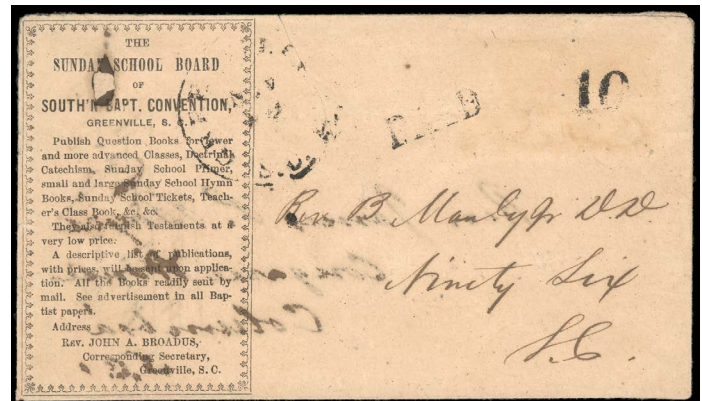 THE
SUNDAY SCHOOL BOARD
OF
SOUTH'N BAPT. CONVENTION,
GREENVILLE, S. C.
Publish Question Books for lower
and more advanced Classes, Doctrinal
Catechism, Sunday School Primer,
small and large Sunday School Hymn
Books, Sunday School Tickets, Teach-
er's Class Book, &c. &c.
They also furnish Testaments at a
very low price.
A descriptive list of publications,
with prices, will be sent upon applica-
tion. All the Books readily sent by
mail. See advertisement in all Bap-
tist papers.
Address
REV. JOHN A. BROADUS,
Corresponding Secretary,
Greenville, S. C.
PAID
10
Rev. B. Manly Jr. D.D
Ninety Six
S.C.